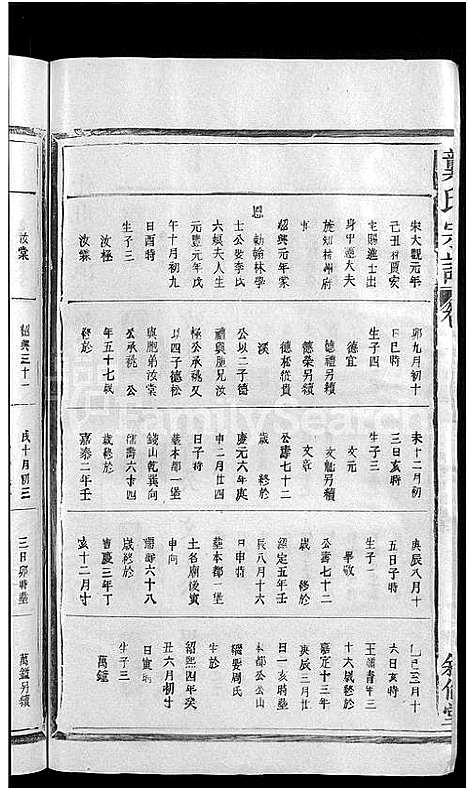 龔氏宗譜 卷
敘倫堂
宋大觀元年
己丑科賈安
宅賜進士出
身中議大夫
施知
紹興元年蒙
恩 勅翰林學
士公娶李氏
六娘夫人生
元豐元年戊
午十月初九
日酉時
生子三
汝極
汝棠
卯九月初十
日巳時
生子四
德宜
德禮另續
德榮另續
德松從貴
溪
公以二子德
禮與胞兄汝
極公承祧又
以四子德松
與胞弟汝棠
公承祧 公
年五十七歲
終於
未十二月初
三日亥時
生子三
文元
文魁另續
文章
公壽七十二
歲 終於
慶元六年庚
申二月廿四
日子時
葬本都一堡
錢山乾巽向
壽六十四
歲終於
嘉泰二年壬
庚辰八月十
五日子時
生子一
舉敬
公壽七十二
歲 終於
紹定五年壬
辰八月十六
日申時
葬本都一堡
土名廟後寅
申向
壽六十八
歲終於
寶慶三年丁
亥十二月廿
乙巳三月十
六日亥時
十六歲終於
嘉定十三年
庚辰三月廿
日一亥時葬
本都公公山
繼娶周氏
生於
紹熙四年癸
丑六月初廿
日寅時
生子三
萬鎰
汝棠
紹興三十一
戌十月初三
三日卯時葬
萬鎰另續